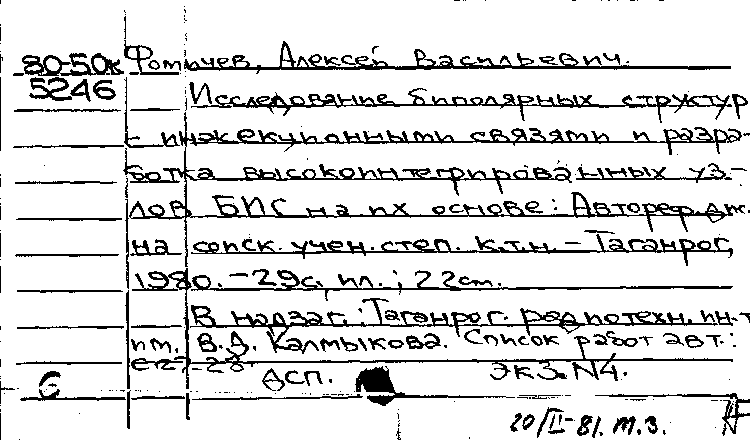 80-50к Фотычев, Алексей Васильевич.
5246 Исследование биполярных структур
с инжекционными связями и разра-
ботка высокоинтегрированных уз-
лов БИС на их основе: Автореф. дис.
на соиск. учен. степ. к.т.н. - Таганрог,
1980. - 29с, ил.; 22см.
В надзаг.: Таганрог. радиотехн. ин-т
им. В.Д. Калмыкова. Список работ авт.:
с 27-28.
6 ДСП. экз. N4.
20/II-81. т.з.